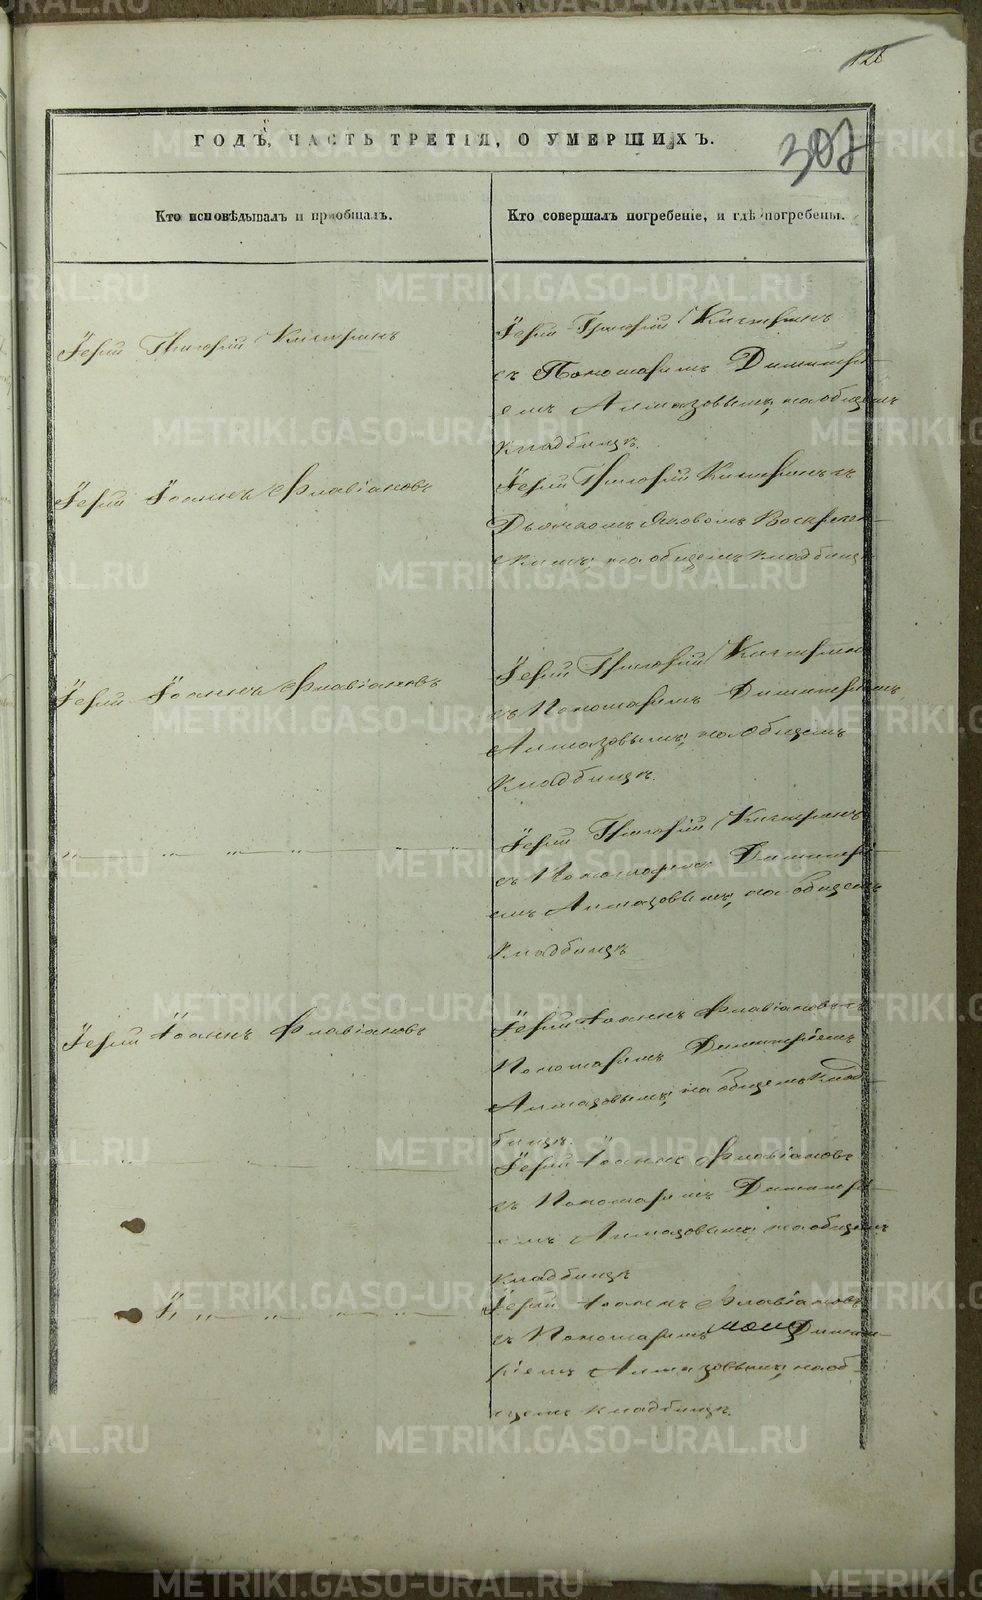 128
307
ГОДЪ, ЧАСТЬ ТРЕТІЯ, О УМЕРШИХЪ.
Кто исповѣдывалъ и пріобщалъ.
Кто совершалъ погребеніе, и гдѣ погребены.
Іерей Григорій
Іерей Григорій
съ Пономаремъ Димитрі-
емъ Алмазовымъ, на общемъ
кладбищѣ.
Іерей Іоаннъ Флавіановъ
Іерей Григорій
Дьячкомъ Яковомъ Воскресен-
скимъ, на общемъ кладбищѣ
Іерей Іоаннъ Флавіановъ
Іерей Григорій
съ Пономаремъ Димитріемъ
Алмазовымъ, на общемъ
кладбищѣ.
Іерей Григорій
съ Пономаремъ Димитрі-
емъ Алмазовымъ, на общемъ
кладбищѣ
Іерей Іоаннъ Флавіановъ
Іерей Іоаннъ Флавіановъ съ
Пономаремъ Димитріемъ
Алмазовымъ, на общемъ клад-
бищѣ.
Іерей Іоаннъ Флавіановъ
съ Пономаремъ Димитрі-
емъ Алмазовымъ, на общемъ
кладбищѣ
Іерей Іоаннъ Флавіановъ
съ Пономаремъ Димит-
ріемъ Алмазовымъ, на об-
щемъ кладбищѣ.
METRIKI.GASO-URAL.RU